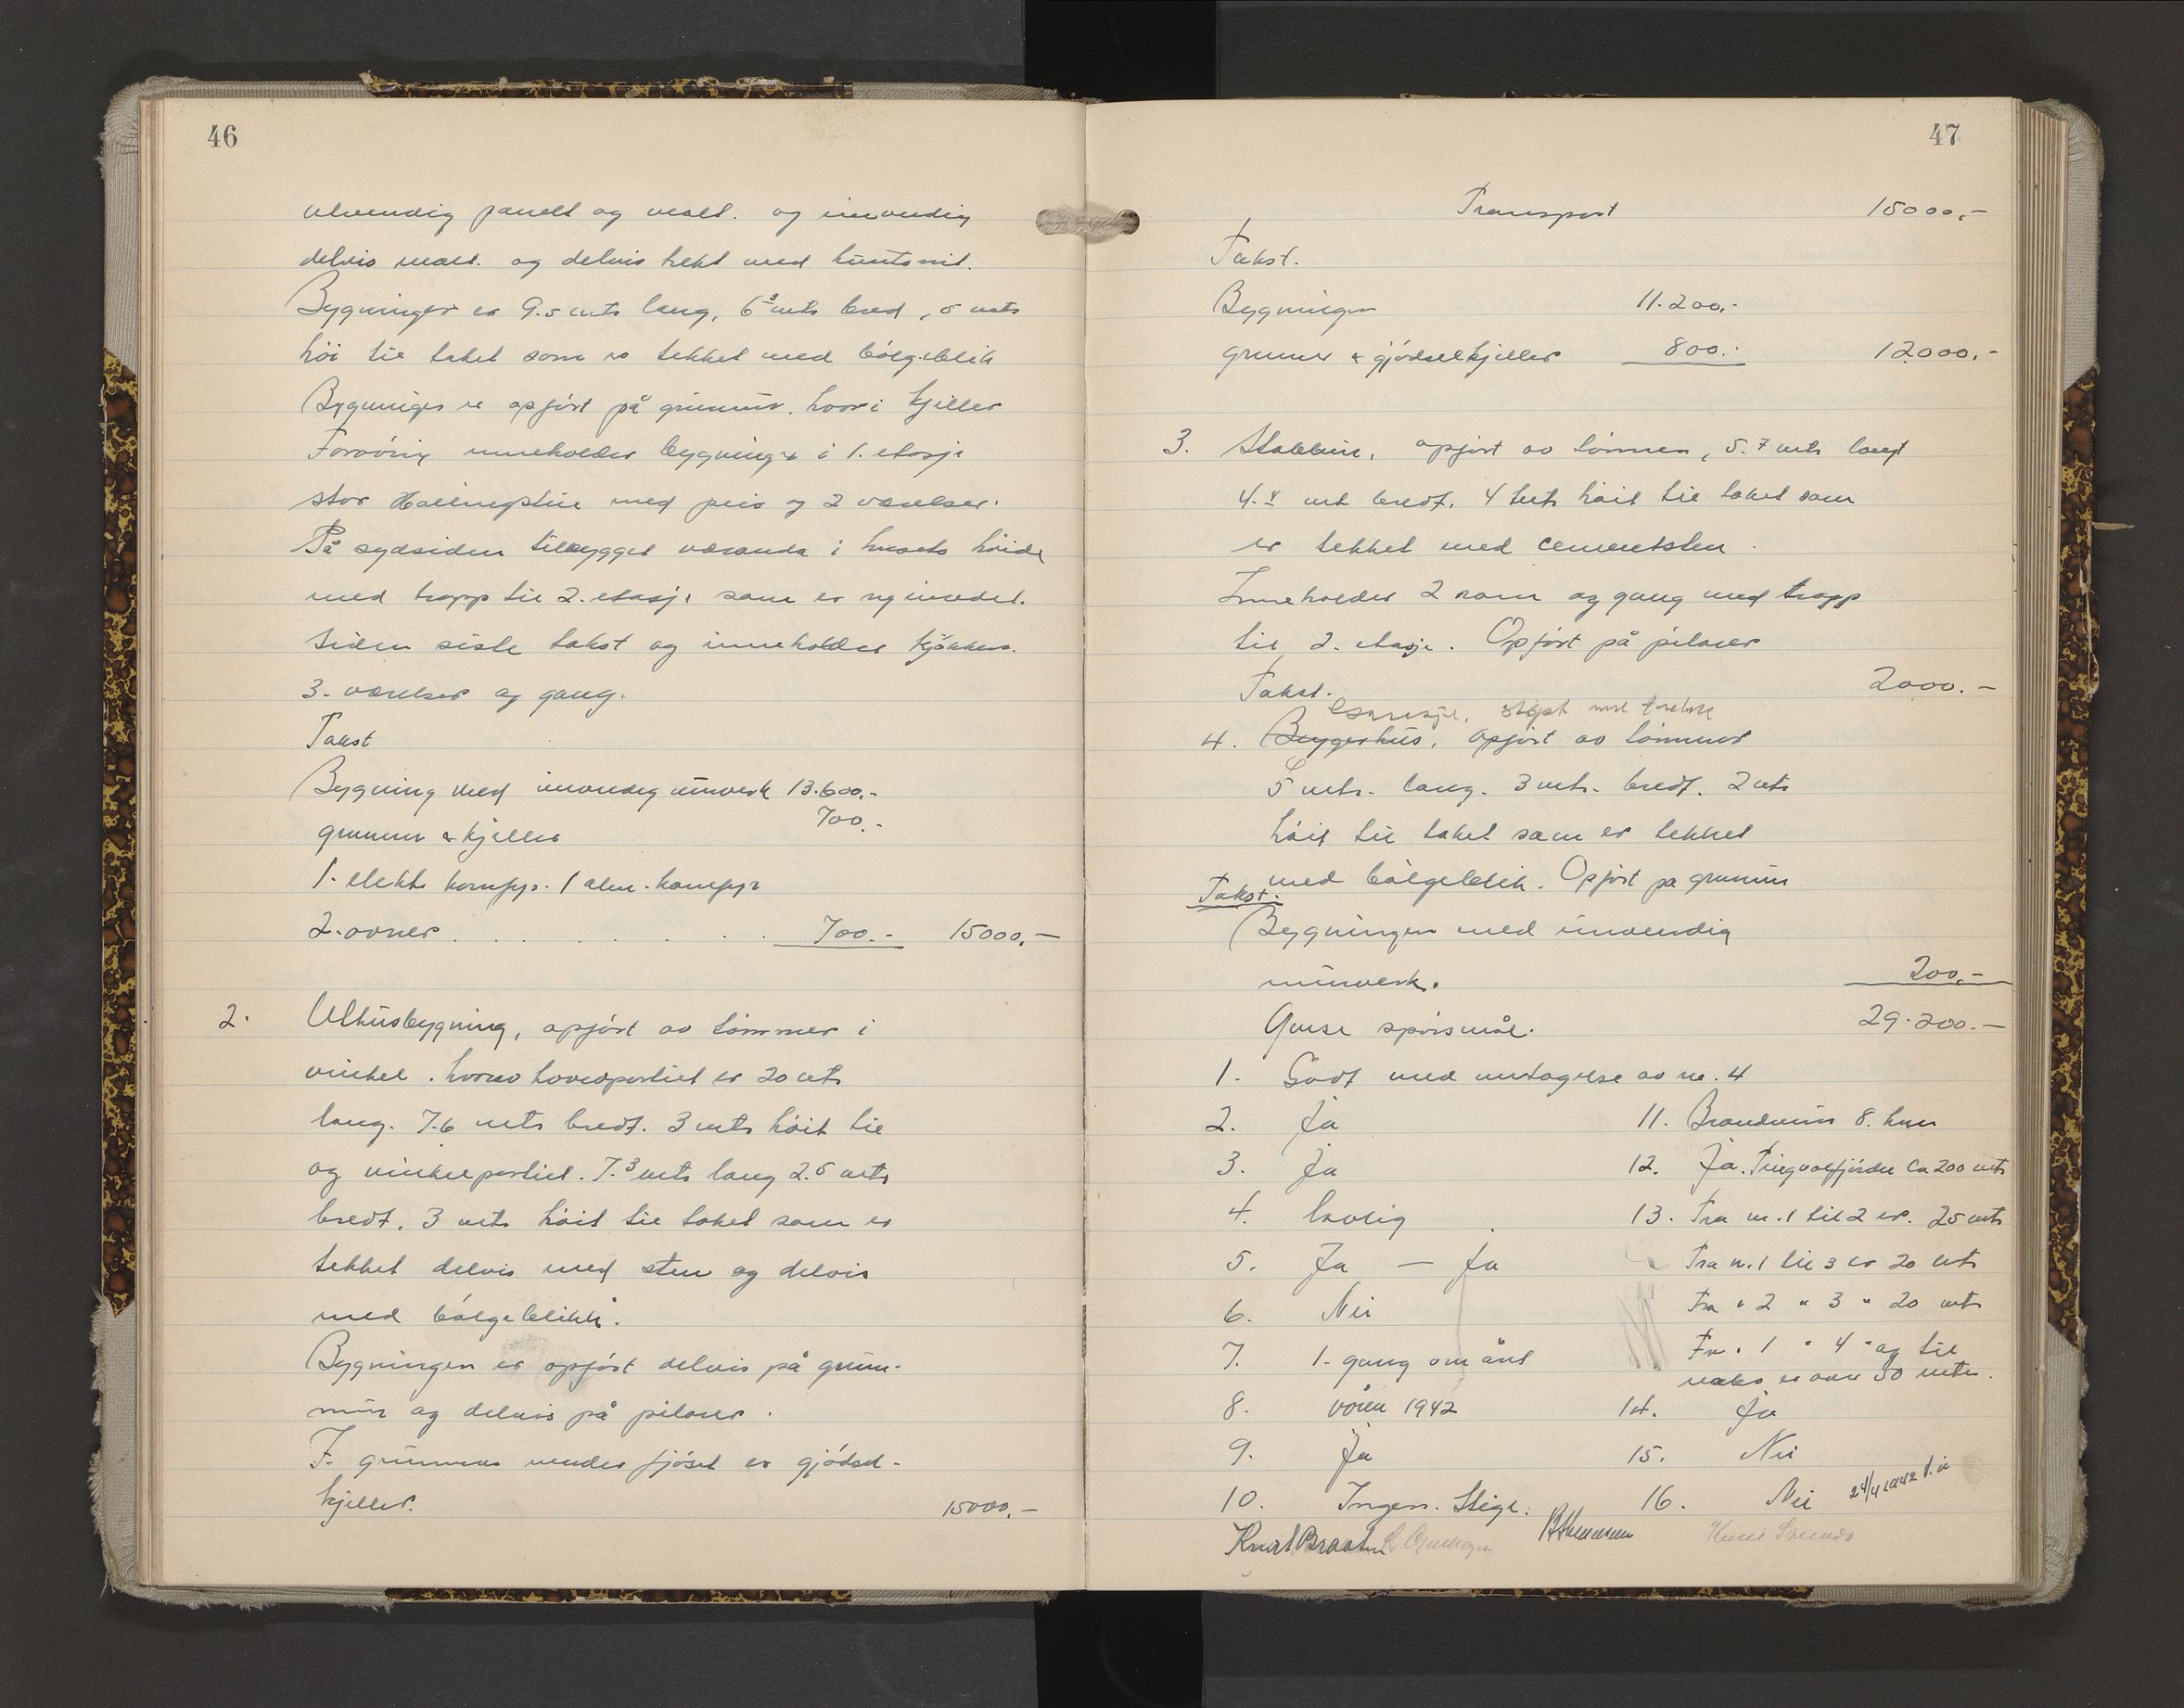 46
utvendig panelt og malt. og invendig
delvis malt. og delvis trekt med huntonit.
Bygningen er 9.5 mtr lang, 6³ mtr bred, 5 mtr
høi til taket som er tekket med bølgeblik
Bygningen er opført på grunmur. hvori kjeller
Forøvrig inneholder bygningen i 1. etasje
stor Hallingstue med peis og 2 værelser.
På sydsiden tilbygget veranda i husets høide
med trapp til 2. etasje som er ny innredet.
siden siste takst og inneholder kjøkken.
3. værelser og gang.
Takst
Bygning med invendig murverk 13.600.-
grunmur & kjeller 700.-
1. elektr komfyr. 1 alm. komfyr
2. ovner . . . . . . . 700.- 15000.-
2. Uthusbygning, opført av tømmer i
vinkel. hvorav hovedpartiet er 20 mtr
lang. 7.6 mtr bredt. 3 mtr høit til
og vinkelpartiet. 7.³ mtr lang 2.5 mtr
bredt. 3 mtr høit til taket som er
tekket delvis med sten og delvis
med bølgeblikk.
Bygningen er opført delvis på grun-
mur og delvis på pilarer.
I grunmuren under fjøset er gjødsel-
kjeller. 15000.-
47
Transport 15000.-
Takst.
Bygningen 11.200.-
grunmur & gjødselkjeller 800.- 12000.-
3. Stabbur, opført av tømmer, 5.7 mtr langt
4.4 mt bredt. 4 mtr høit til taket som
er tekket med cementsten.
Inneholder 2 rom og gang med trapp
til 2. etasje. Opført på pilarer
Takst. 2000.-
Garasje, støpt med
4. Bryggerhus. opført av tømmer
5 mtr. lang. 3 mtr. bredt. 2 mtr
høit til taket som er tekket
med bølgeblik. Opført på grunmur
Takst.
Bygningen med invendig
murverk. 200.-
Gense spørsmål. 29.200.-
1. Godt med untagelse av nr. 4
2. Ja
3. Ja
4. lovlig
5. Ja — Ja
6. Nei
7. 1. gang om året
8. våren 1942
9. Ja
10. Ingen. Stige.
11. Brandmur 8. km
12. Ja. Tingvolfjorden ca 200 mtr
13. Fra nr. 1 til 2 er. 25 mtr
Fra nr. 1 til 3 er 20 mtr
Fra " 2 " 3 " 20 mtr
Fra " 1 " 4 " og til
nabo er over 50 mtr.
14. Ja
15. Nei
16. Nei 24/4 1942
Knut Braaten